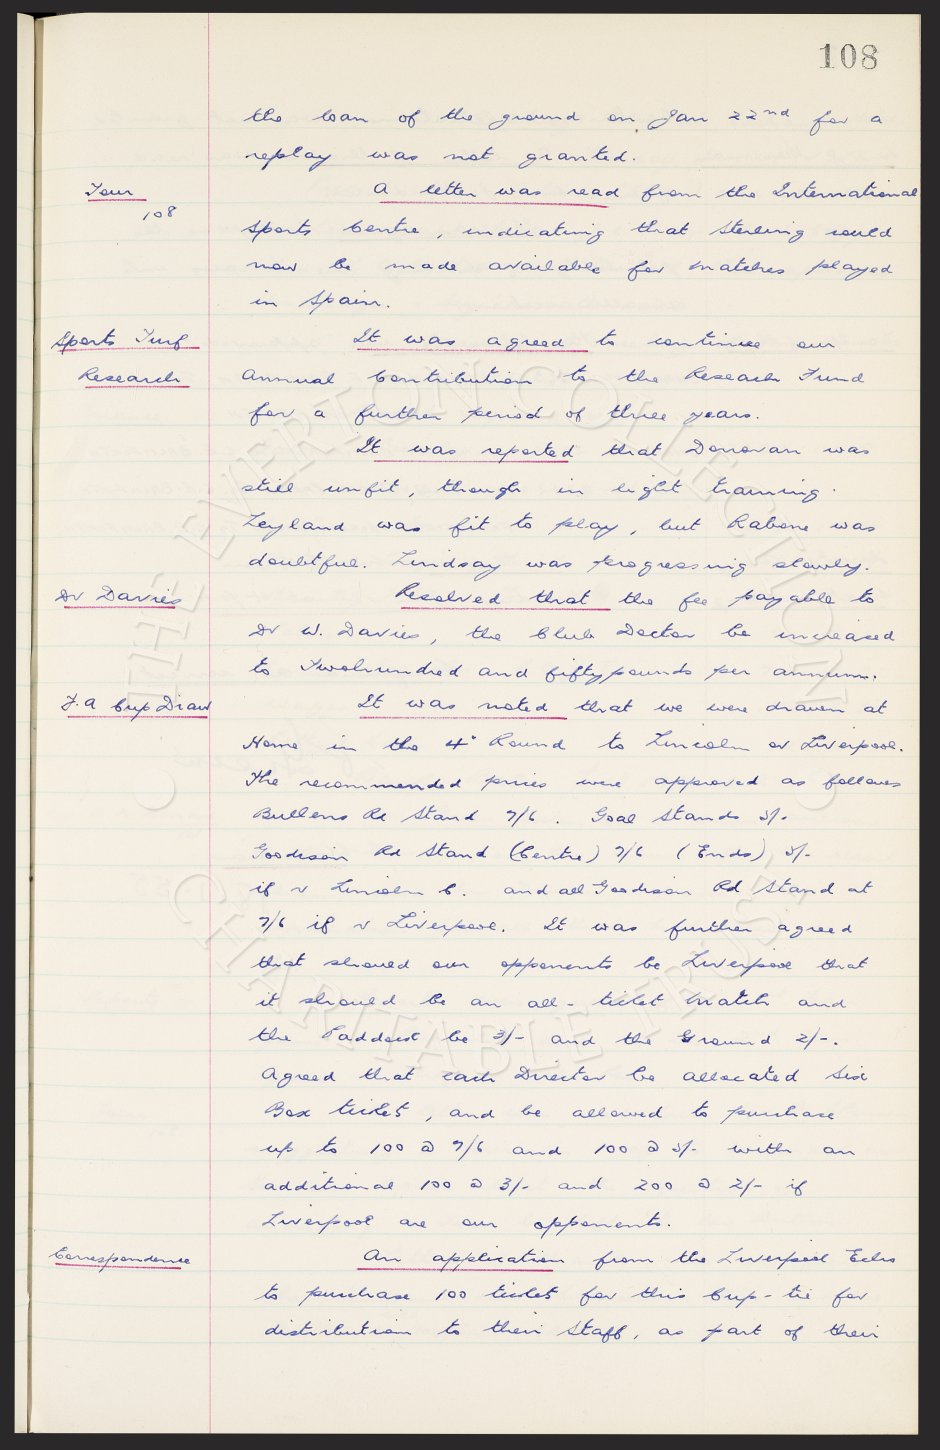 108
the loan of the ground on Jan 22nd for a
replay was not granted.
Tour
A letter was read from the International
108
Sports Centre, indicating that Sterling could
now be made available for matches played
in Spain.
Sports Turf
It was agreed to continue our
Research
annual Contribution to the Reseach Fund
for a further period of three years.
It was reported that Donovan was
still unfit, though in light training.
Leyland was fit to play, but Rabone was
doubtful. Lindsay was progressing slowly.
Dr Davies
Resolved that the fee payable to
Dr W. Davies, the Club Doctor be increased
to Twohundred and fiftypounds per annum.
F.A Cup Draw
It was noted that we were drawn at
Home in the 4" Round to Lincoln or Liverpool.
The recommended prices were approved as follows
Bullens Rd Stand 7/6. Goal Stands 5/-
Goodison Rd Stand (Centre) 7/6 (Ends) 5/-
if v Lincoln C. and all Goodison Rd Stand at
7/6 if v Liverpool. It was further agreed
that should our opponents be Liverpool that
it should be an all-ticket match and
the Paddock be 3/- and the Ground 2/-.
Agreed that each Director be allocated six
Box tickets, and be allowed to purchase
up to 100 @ 7/6 and 100 @ 5/- with an
additional 100 @ 3/- and 200 @ 2/- if
Liverpool are our opponents.
Correspondence
An application from the Liverpool Echo
to purchase 100 tickets for this Cup-tie for
distribution to their Staff, as part of their
THE EVERTON COLLECTION
CHARITABLE TRUST